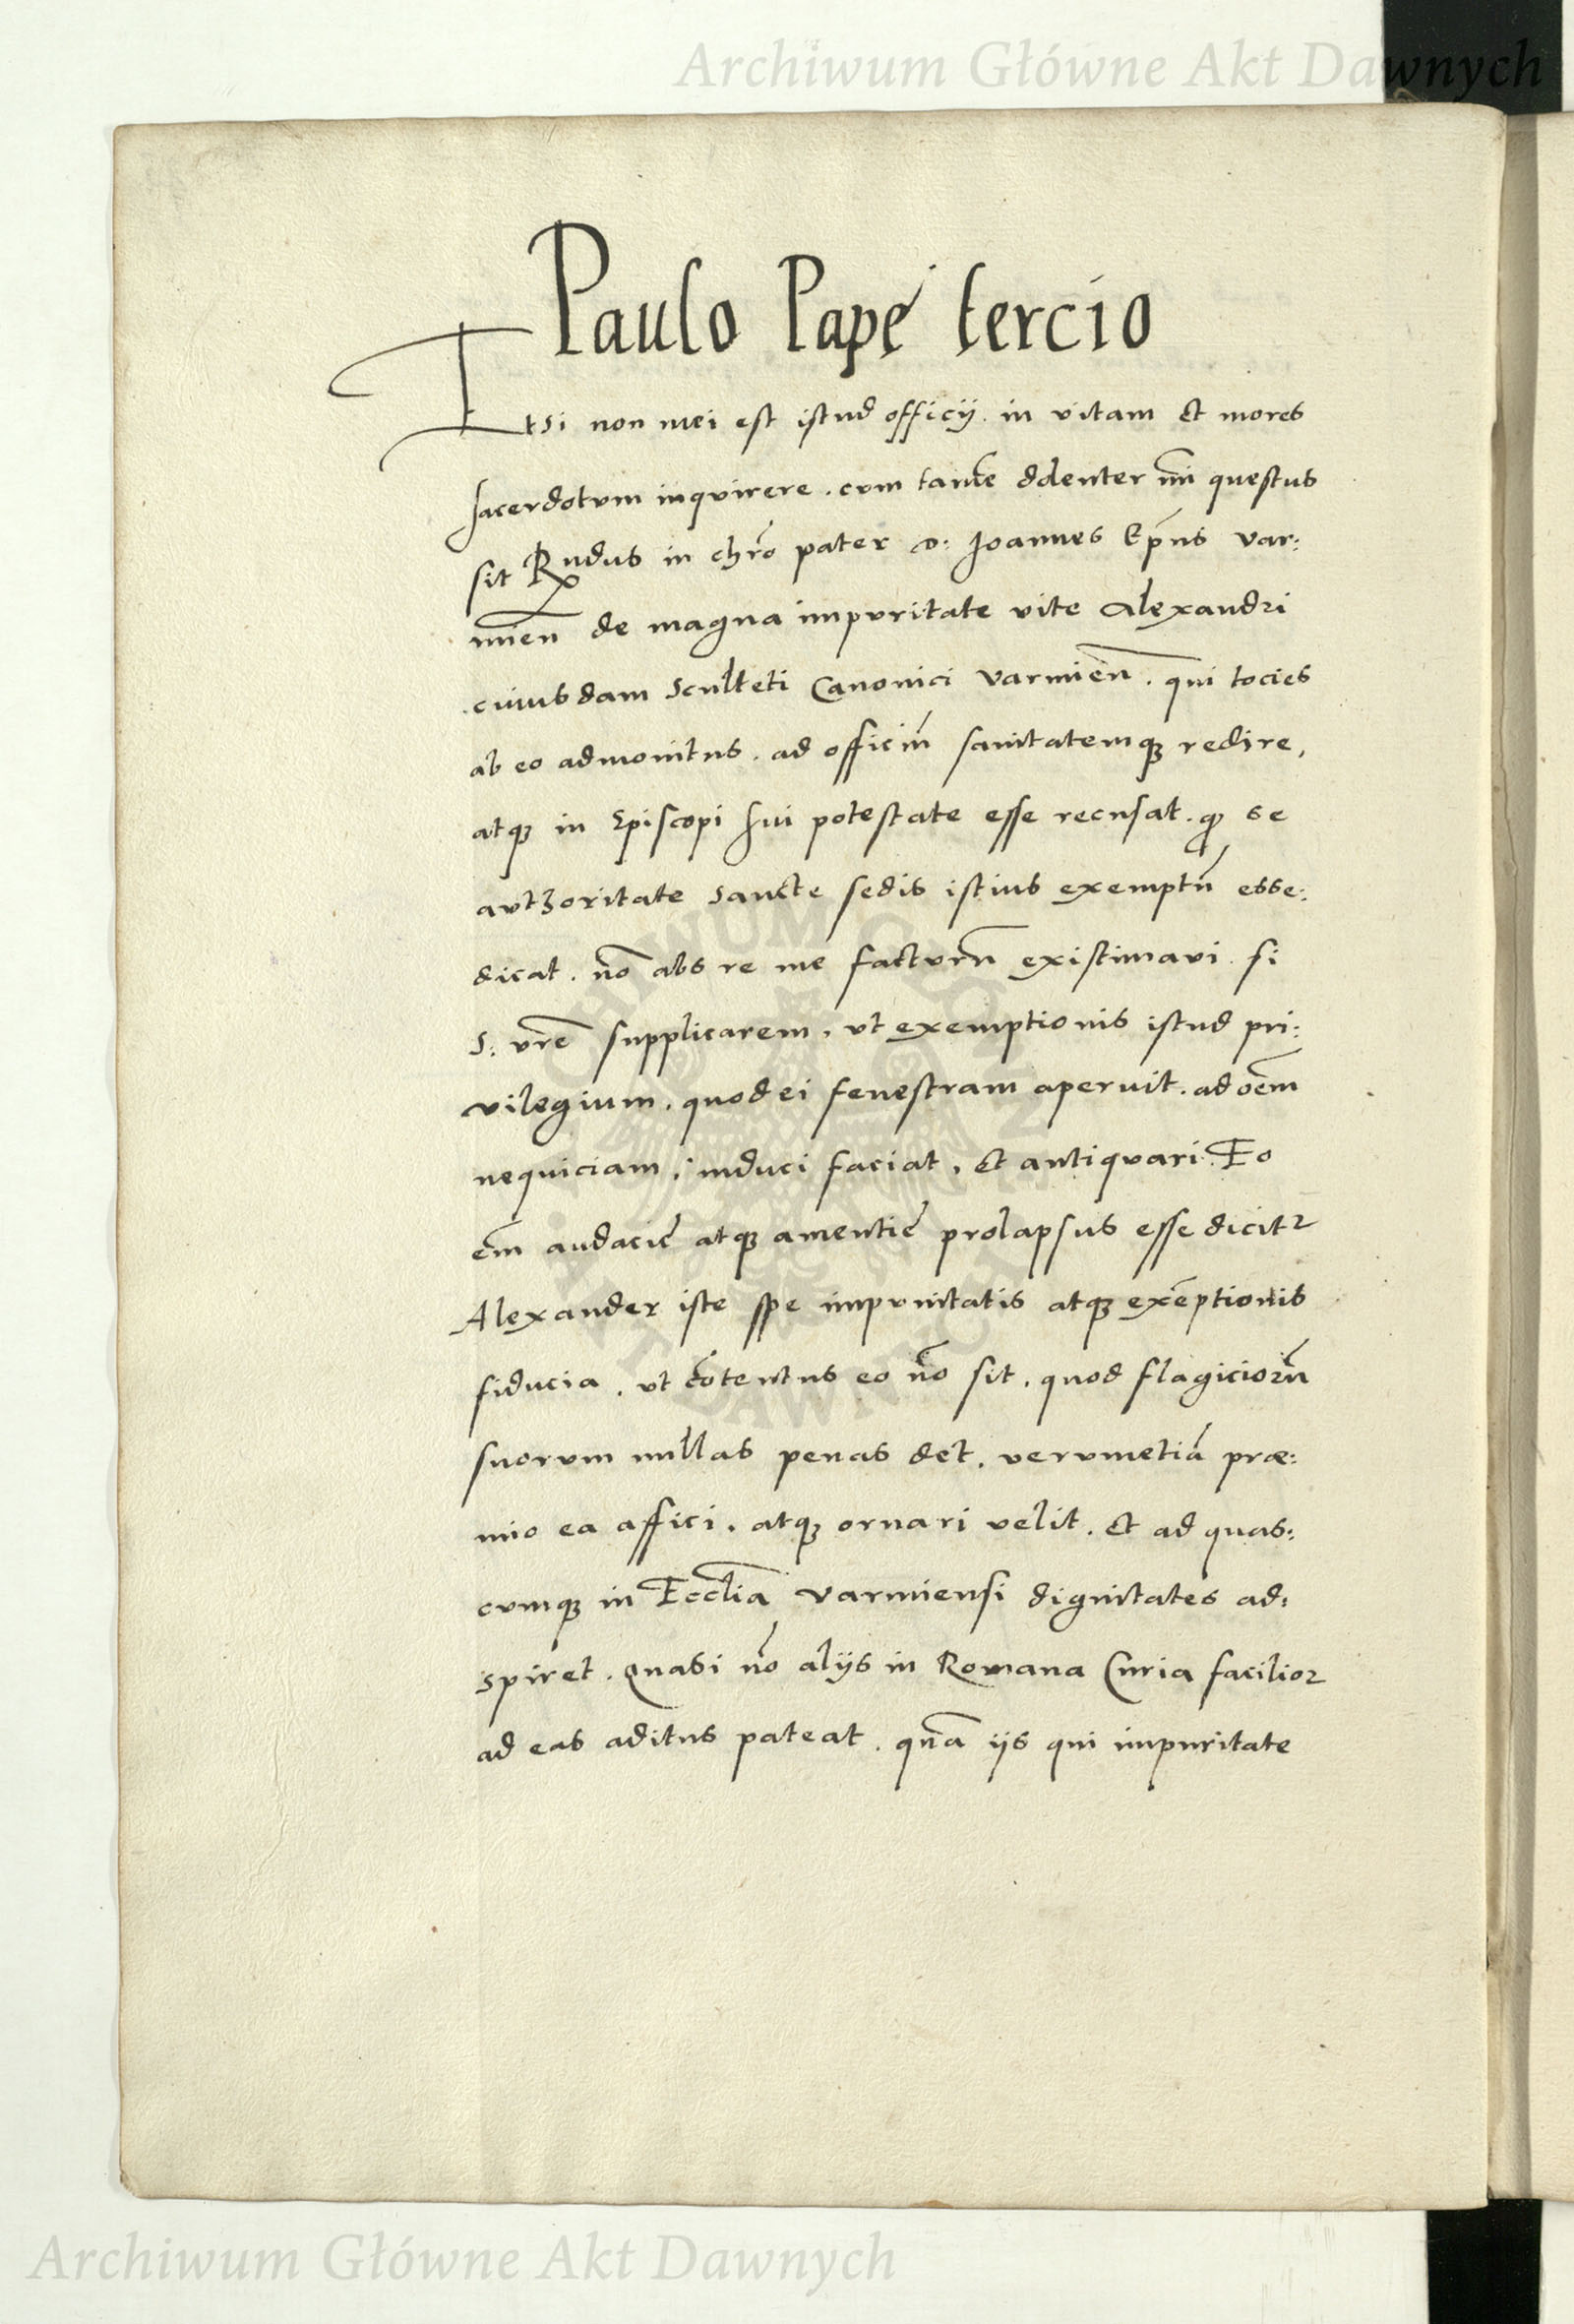 Archiwum Główne Akt Dawnych
Paulo Papę tercio
Etsi non mei est istud officij. in vitam et mores
sacerdotum inquirere. cum tamē dolenter mi questus
sit Rndus in chro pater D: Joannes Epns Var:
mien de magna impuritate vite Alexandri
cuiusdam Sculteti Canonici Varmien. qui tocies
ab eo admonitus. ad officiu sanitatemq redire,
atq in Episcopi sui potestate esse recusat. q se
authoritate Sancte sedis istius exemptu esse
dicat. no abs re me facturu existimavi. si
S: vre supplicarem, ut exemptionis istud pri:
vilegium. quod ei fenestram aperuit. ad oem
nequiciam, induci faciat, et antiquari. Eo
em audacie atq amentie prolapsus esse dicitr
Alexander iste spe impunitatis atq exēptionis
fiducia, ut cotentus eo no sit. quod flagicioru
suorum nullas penas det. verumetia præ:
mio ea affici, atq ornari velit. et ad quas:
cumq in Ecclia Varmiensi dignitates ad:
spiret. Quasi no alijs in Romana Curia facilior
ad eas aditus pateat. qua ijs qui impuritate
ARCHIWUM GŁÓWNE
AKT DAWNYCH
Archiwum Główne Akt Dawnych